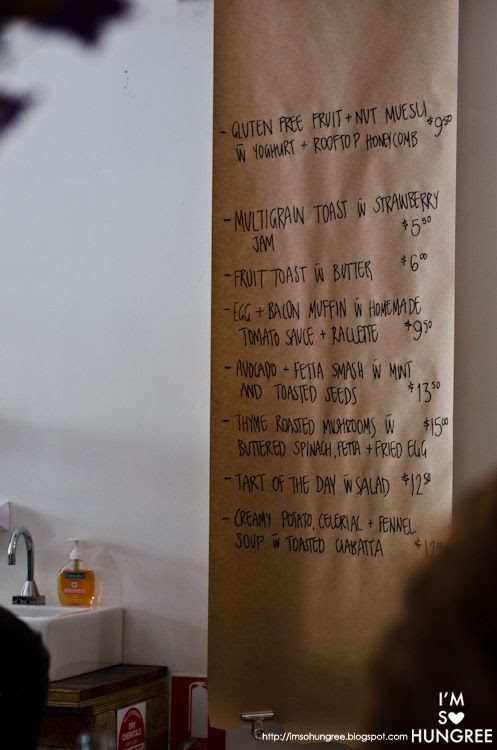 - GLUTEN FREE FRUIT + NUT MUESLI $9.50
w̄ YOGHURT + ROOFTOP HONEYCOMB
- MULTIGRAIN TOAST w̄ STRAWBERRY
JAM $5.50
- FRUIT TOAST w̄ BUTTER $6.00
- EGG + BACON MUFFIN w̄ HOMEMADE
TOMATO SAUCE + RACLETTE $9.50
- AVOCADO + FETTA SMASH w̄ MINT
AND TOASTED SEEDS $13.50
- THYME ROASTED MUSHROOMS w̄ $15.00
BUTTERED SPINACH, FETTA + FRIED EGG
- TART OF THE DAY w̄ SALAD $12.50
- CREAMY POTATO, CELERIAC + FENNEL
SOUP w̄ TOASTED CIABATTA
DRY
CHEMICAL
I'M
SO
HUNGREE
http://imsohungree.blogspot.com